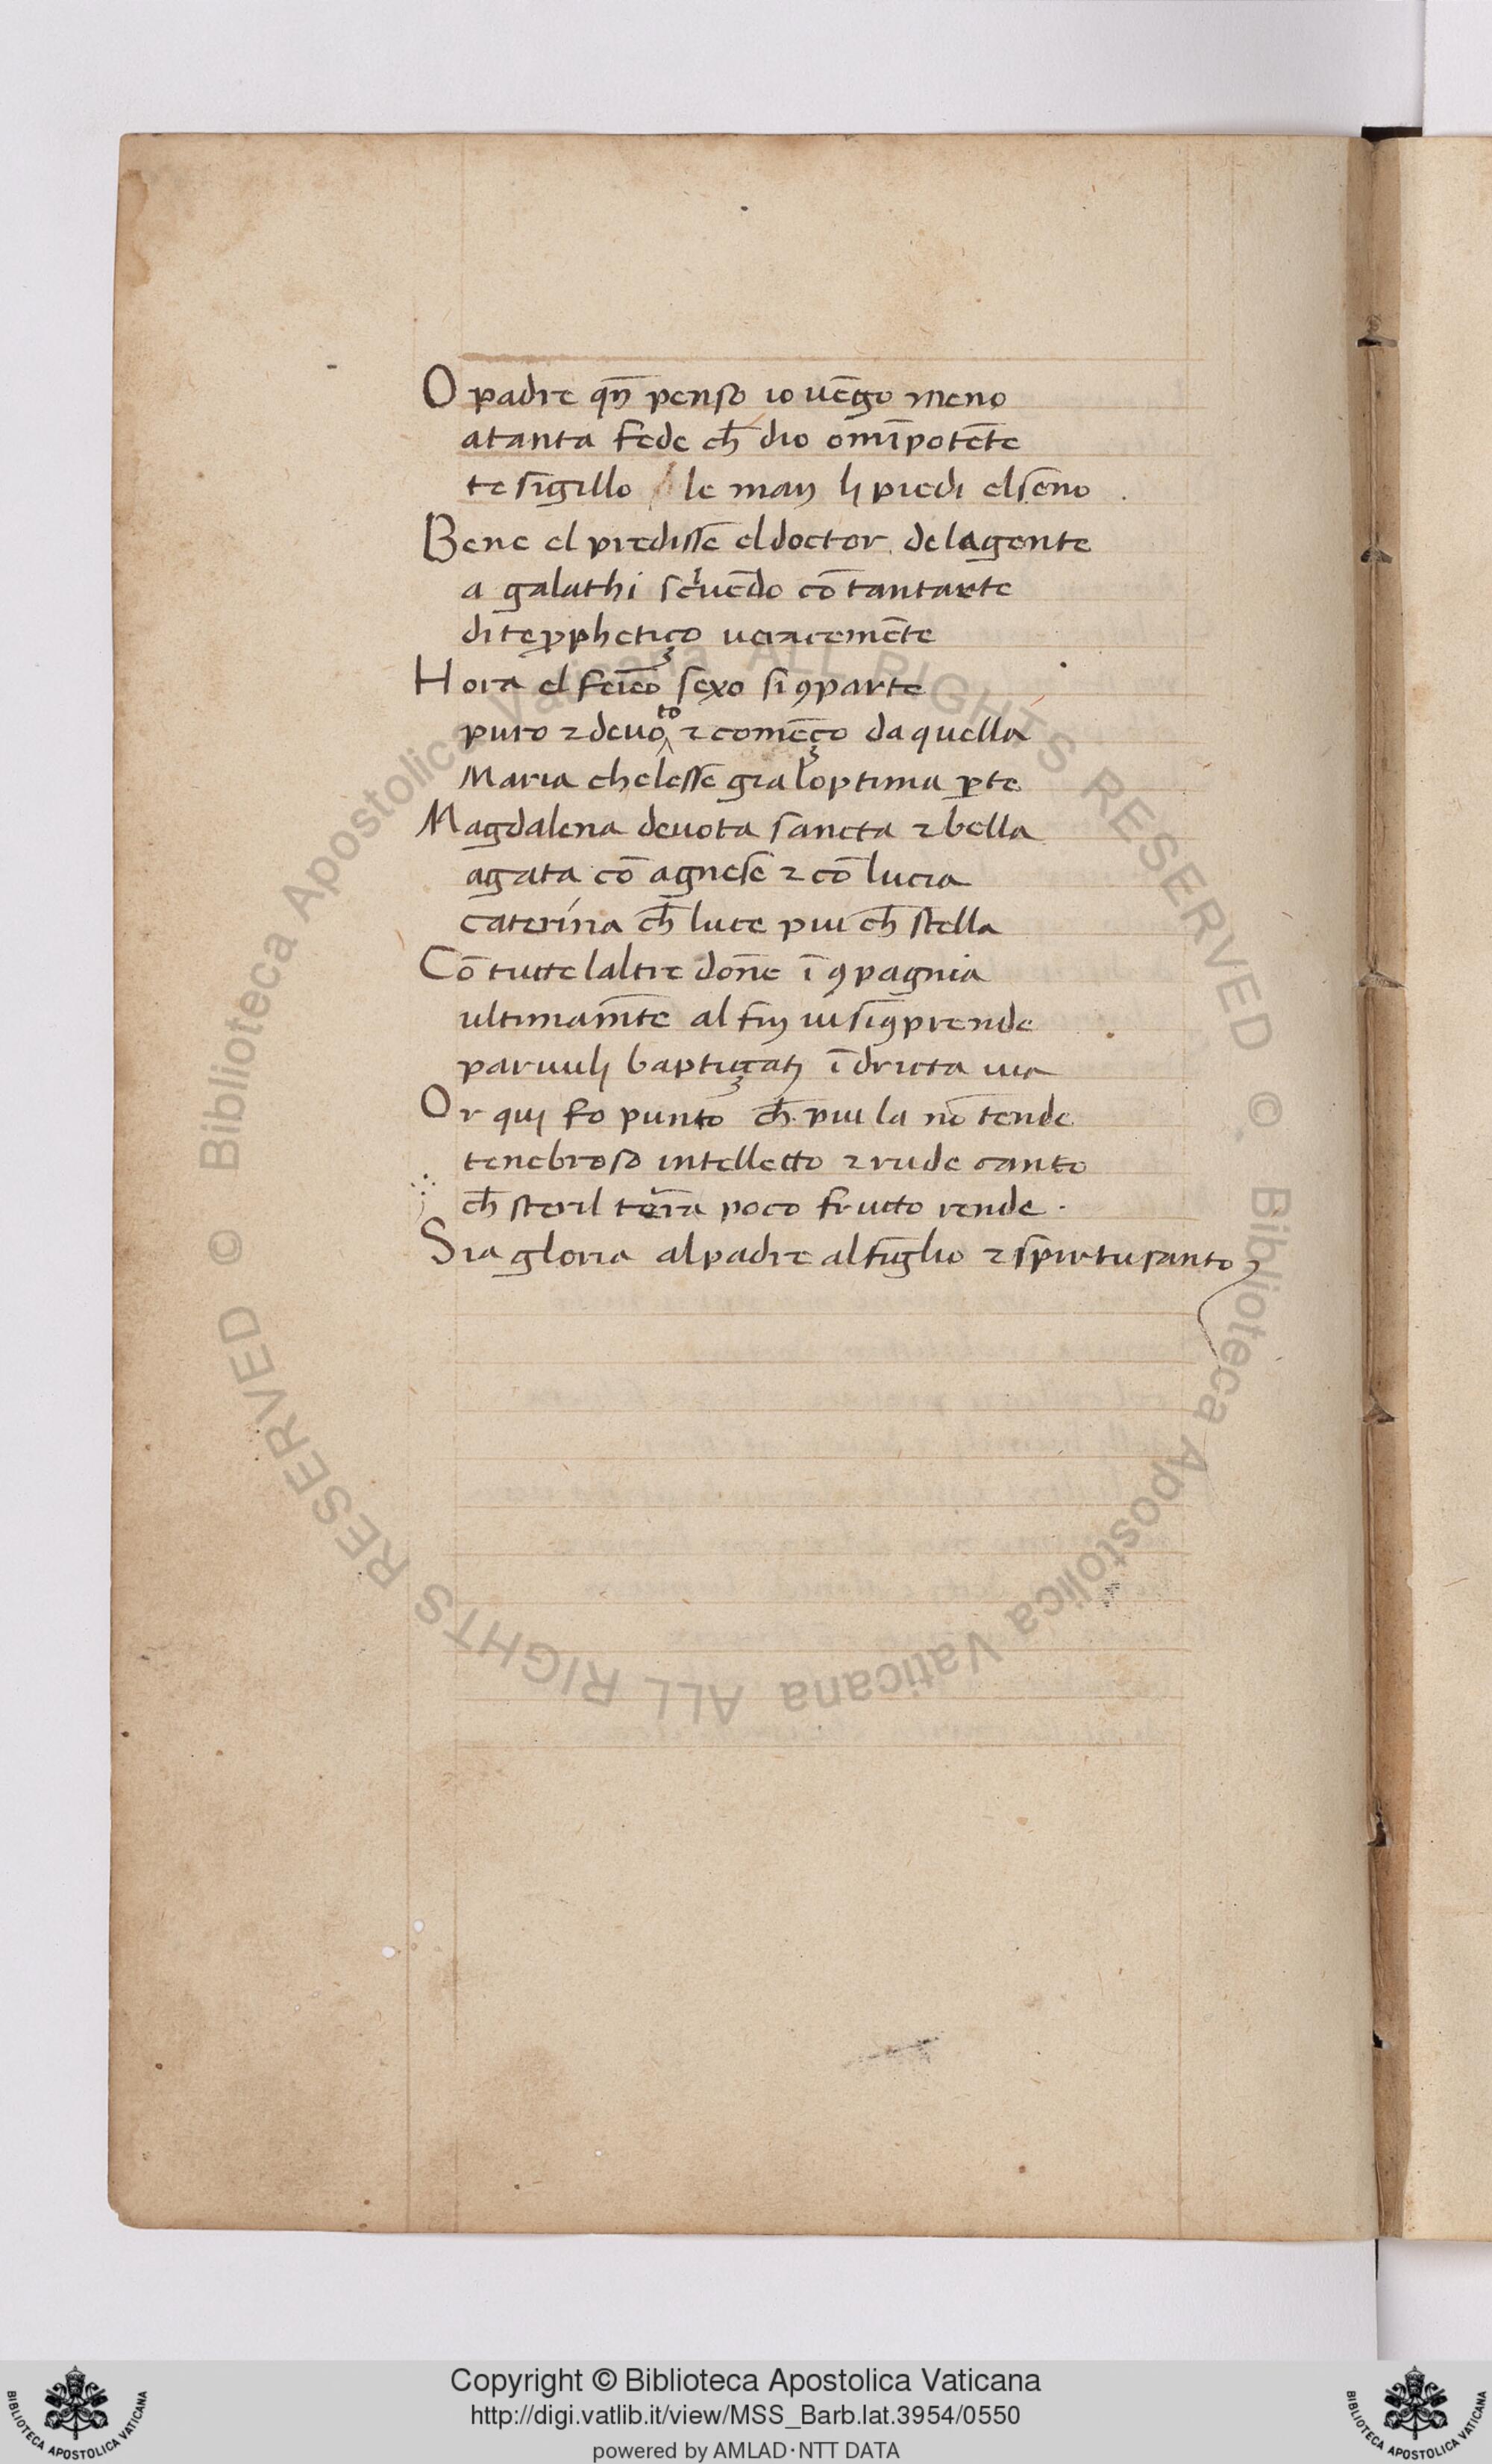 O padre qn̄ penso io uēgo meno
atanta fede ch̄ dio omīpotēte
te sigillo le man li piedi elseno
Bene el predisse eldoctor delagente
a galathi scⁱuēdo cō tantarte
di te ꝓphetiço ueracemēte
Hora el feīeo sexo si ꝯparte
puro ⁊ deuoto ⁊ comēço da quella
Maria chelesse gia loptima ꝑte
Magdalena deuota sancta ⁊ bella
agata cō agnese ⁊ cō lucia
caterina ch̄ luce piu ch̄ stella
Cō tutte laltre dōne ī ꝯpagnia
ultimam̄te al fin iui si ꝯprende
paruuli baptiçati ī dricta uia
Or qui fo punto ch̄ piu la nō tende
tenebroso intelletto ⁊ rude canto
ch̄ steril terra poco frutto rende.
Sia gloria alpadre alfiglio ⁊ spirtu santo
Biblioteca Apostolica Vaticana ALL RIGHTS RESERVED ©
Biblioteca Apostolica Vaticana ALL RIGHTS RESERVED ©
Copyright © Biblioteca Apostolica Vaticana
http://digi.vatlib.it/view/MSS_Barb.lat.3954/0550
powered by AMLAD·NTT DATA
BIBLIOTECA APOSTOLICA VATICANA
BIBLIOTECA APOSTOLICA VATICANA